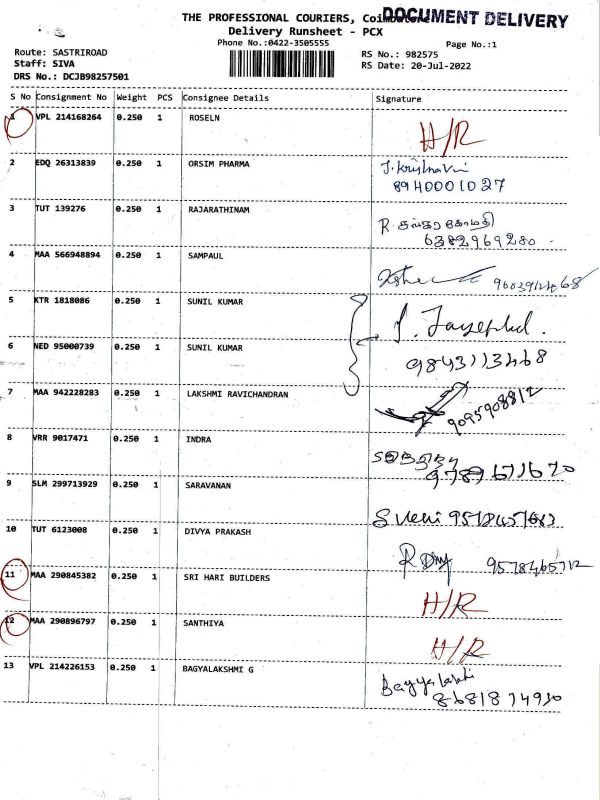 THE PROFESSIONAL COURIERS, Coimbatore
DOCUMENT DELIVERY
Delivery Runsheet - PCX
Phone No.:0422-3505555
Page No.:1
Route: SASTRIROAD
Staff: SIVA
DRS No.: DCJB98257501
RS No.: 982575
RS Date: 20-Jul-2022
S No Consignment No Weight PCS Consignee Details Signature
1 VPL 214168264 0.250 1 ROSELN
H/R
2 EDQ 26313839 0.250 1 ORSIM PHARMA
8940001027
3 TUT 139276 0.250 1 RAJARATHINAM
6382969280
4 MAA 566948894 0.250 1 SAMPAUL
5 KTR 1818006 0.250 1 SUNIL KUMAR
6 NED 95000739 0.250 1 SUNIL KUMAR
9843113468
7 MAA 942228283 0.250 1 LAKSHMI RAVICHANDRAN
9095908812
8 VRR 9017471 0.250 1 INDRA
9789671670
9 SLM 299713929 0.250 1 SARAVANAN
10 TUT 6123008 0.250 1 DIVYA PRAKASH
9578465712
11 MAA 290845382 0.250 1 SRI HARI BUILDERS
H/R
12 MAA 290896797 0.250 1 SANTHIYA
H/R
13 VPL 214226153 0.250 1 BAGYALAKSHMI G
8681874930